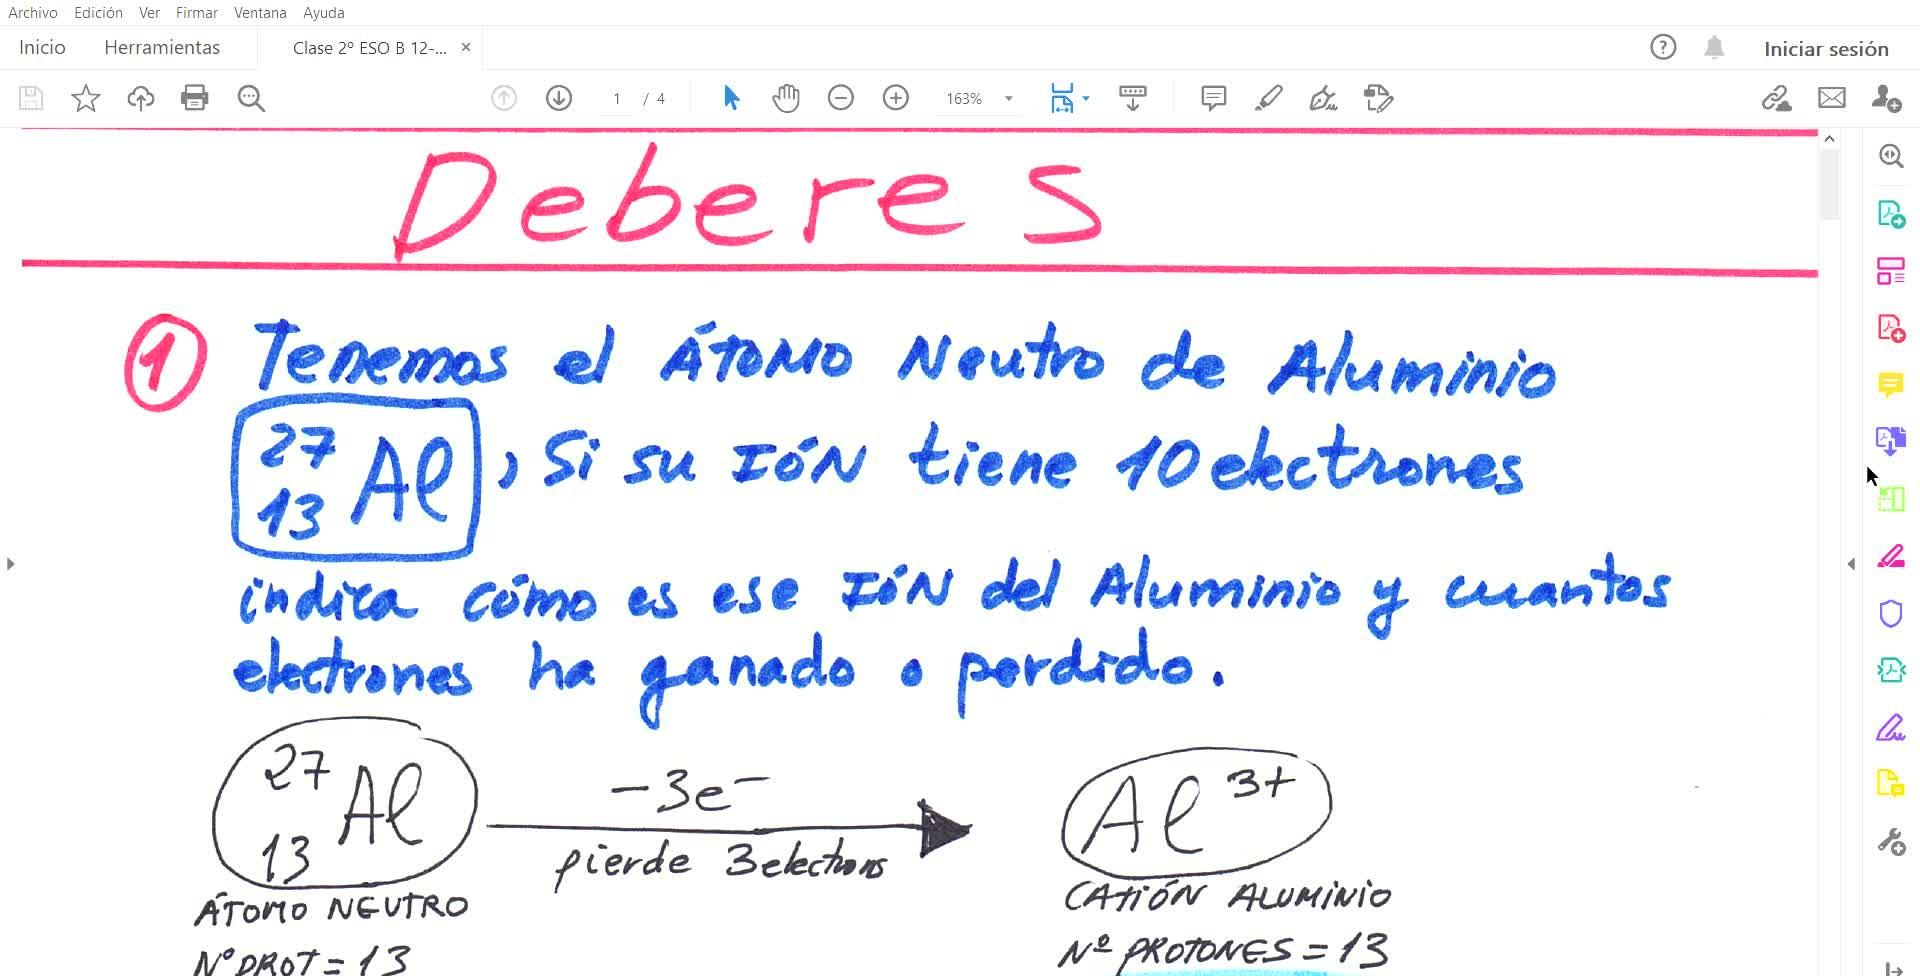 Archivo Edición Ver Firmar Ventana Ayuda
Inicio Herramientas Clase 2º ESO B 12-... × Iniciar sesión
1 / 4 163%
Deberes
1 Tenemos el ÁTOMO Neutro de Aluminio
27 13 Al , Si su IÓN tiene 10 electrones
indica cómo es ese IÓN del Aluminio y cuantos
electrones ha ganado o perdido.
27 13 Al −3e− Al 3+
pierde 3 electrons
ÁTOMO NEUTRO CATIÓN ALUMINIO
Nº PROT = 13 Nº PROTONES = 13